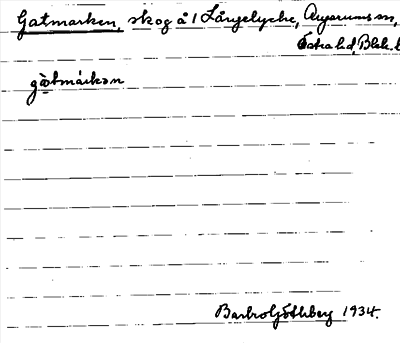 Gatmarken, skog å 1 Långelycke, Augerums sn,
Östra hd, Blek. l
gɑ̀tmárkən
Barbro Göthberg 1934.